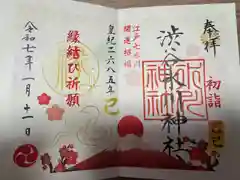 奉拝
初詣
渋谷氷川神社
江戸七氷川
開運招福
皇紀二六八五年
巳
縁結び祈願
令和七年一月十一日